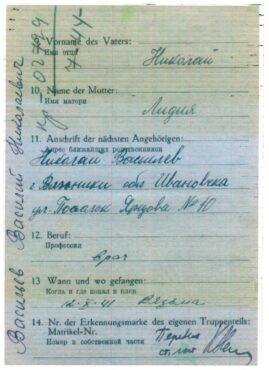 Васильев Василий Николаевич
02799
7 44
Vorname des Vaters:
Имя отца
Николай
10. Name der Mutter:
Имя матери
Лидия
11. Anschrift der nächsten Angehörigen:
Адрес ближайших родственников
Николай Василев
г. Вязники обл Ивановка
ул. Поселок Ярцова № 10
12. Beruf:
Профессия
Врач
13 Wann und wo gefangen:
Когда и где попал в плен
12-X-41 Вязьма
14. Nr. der Erkennungsmarke des eigenen Truppenteils:
Matrikel-Nr.
Номер в собственной части
Перевел
ст. лит